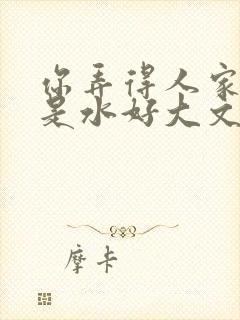 你弄得人家
是水好大文
摩卡